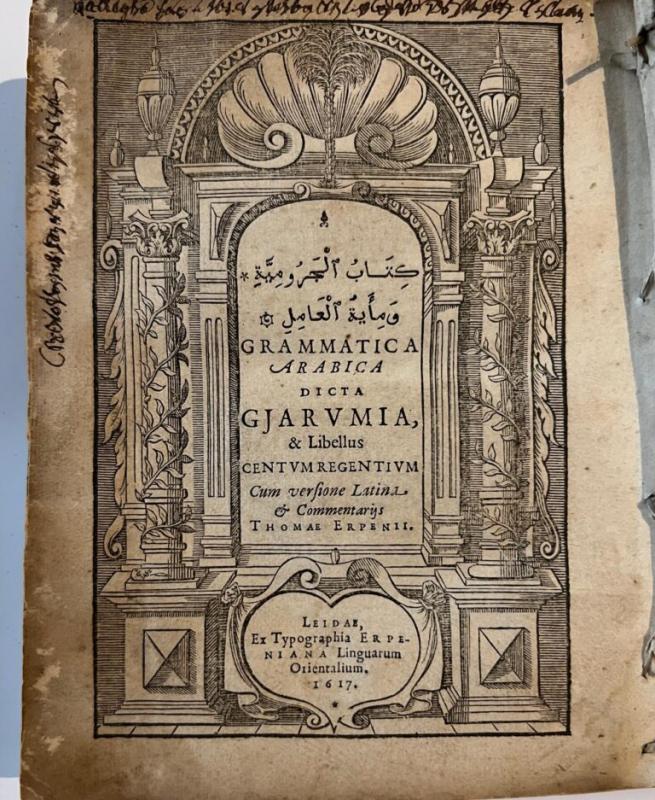 كِتَابُ ٱلْجَرُومِيَّةِ
وَمِأَيةُ ٱلْعَامِلِ
GRAMMATICA
ARABICA
DICTA
GJARVMIA,
& Libellus
CENTVM REGENTIVM
Cum versione Latina
& Commentarijs
THOMAE ERPENII.
LEIDAE,
Ex Typographia ERPE-
NIANA Linguarum
Orientalium.
1617.